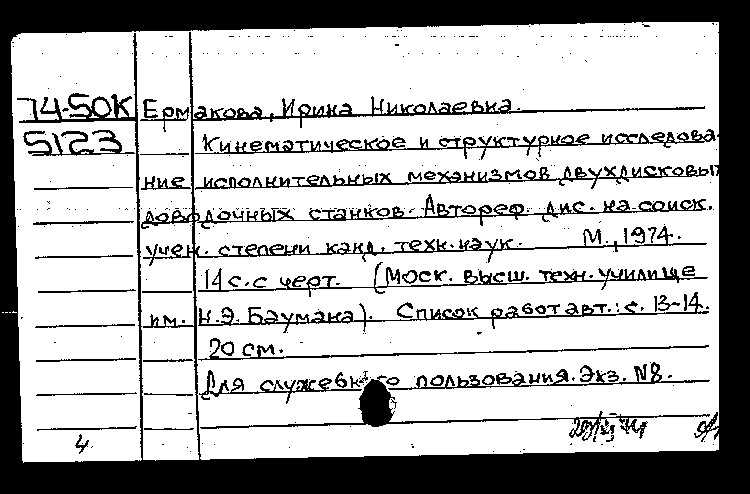 74-50К Ермакова, Ирина Николаевна.
5123 Кинематическое и структурное исследова-
ние исполнительных механизмов двухдисковых
доводочных станков. Автореф. дис. на соиск.
учен. степени канд. техн. наук. М., 1974.
14 с. с черт. (Моск. высш. техн. училище
им. Н.Э. Баумана). Список работ авт.: с. 13-14.
20 см.
Для служебного пользования. Экз. N8.
4